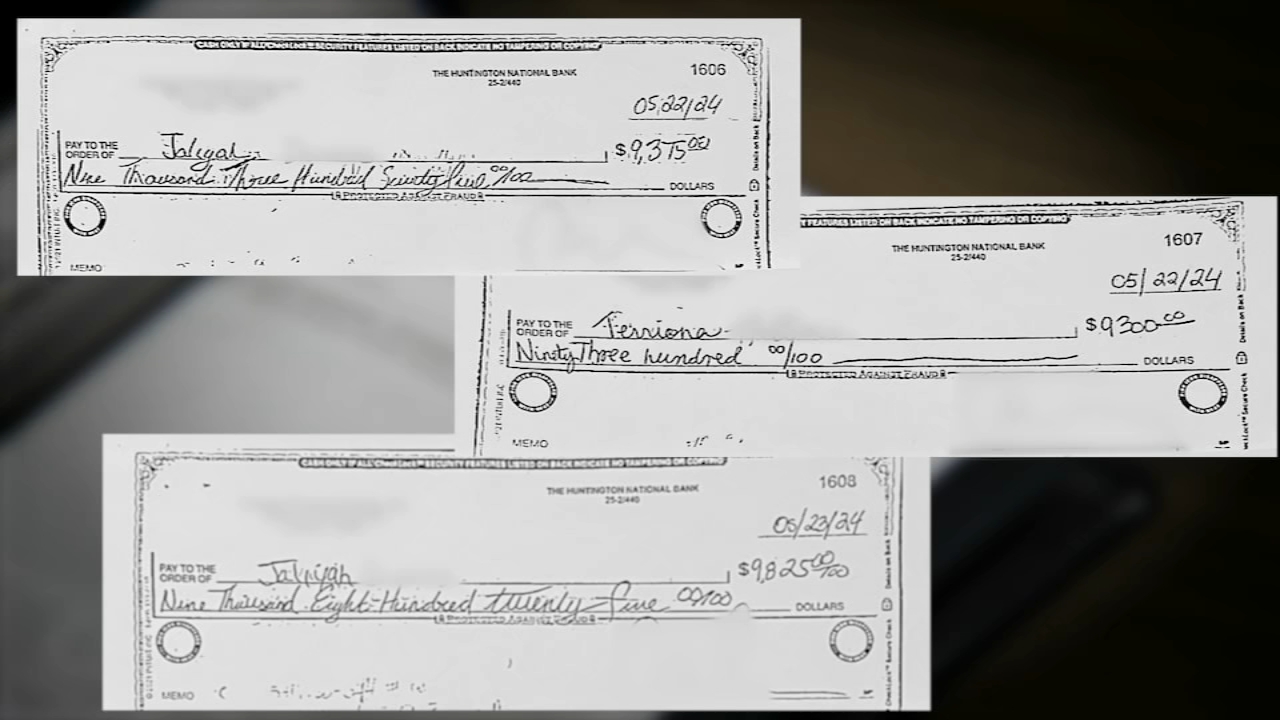 CASH ONLY IF ALL CheckLock™ SECURITY FEATURES LISTED ON BACK INDICATE NO TAMPERING OR COPYING
THE HUNTINGTON NATIONAL BANK
25-2/440
1606
05/22/24
PAY TO THE ORDER OF Jaliyah $9,375
Nine Thousand Three Hundred Seventy five 00/100 DOLLARS
PROTECTED AGAINST FRAUD
MEMO
Details on Back
FEATURES LISTED ON BACK INDICATE NO TAMPERING OR COPYING
THE HUNTINGTON NATIONAL BANK
25-2/440
1607
05/22/24
PAY TO THE ORDER OF Terriona $9300.00
Ninety Three hundred 00/100 DOLLARS
PROTECTED AGAINST FRAUD
MEMO
Details on Back
CASH ONLY IF ALL CheckLock™ SECURITY FEATURES LISTED ON BACK INDICATE NO TAMPERING OR COPYING
THE HUNTINGTON NATIONAL BANK
25-2/440
1608
05/23/24
PAY TO THE ORDER OF Jaliyah $9,825 00/100
Nine Thousand Eight Hundred twenty-five 00/100 DOLLARS
PROTECTED AGAINST FRAUD
MEMO
Details on Back